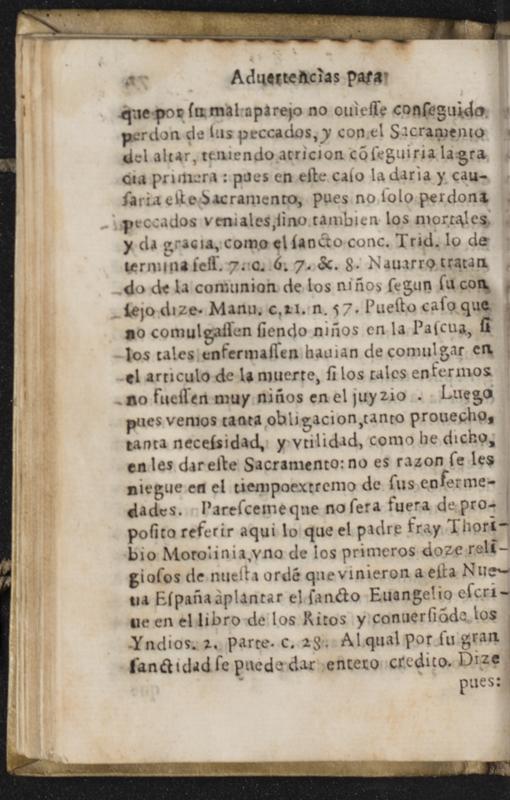 Aduertencias para
que por su mal aparejo no ouiesse conseguido
perdon de sus peccados, y con el Sacramento
del altar, teniendo atricion cõseguiria la gra
cia primera : pues en este caso la daria y cau-
saria este Sacramento, pues no solo perdona
peccados veniales, sino tambien los mortales
y da gracia, como el sancto conc. Trid. lo de
termina sess. 7. c. 6. 7. &. 8. Nauarro tratan
do de la comunion de los niños segun su con
sejo dize. Manu. c, 21. n. 57. Puesto caso que
no comulgassen siendo niños en la Pascua, si
los tales enfermassen hauian de comulgar en
el articulo de la muerte, si los tales enfermos
no fuessen muy niños en el juyzio . Luego
pues vemos tanta obligacion, tanto prouecho,
tanta necessidad, y vtilidad, como he dicho,
en les dar este Sacramento: no es razon se les
niegue en el tiempo extremo de sus enferme-
dades. Paresceme que no sera fuera de pro-
posito referir aqui lo que el padre fray Thori-
bio Motolinia, vno de los primeros doze reli-
giosos de nuesta ordẽ que vinieron a esta Nue-
ua España àplantar el sancto Euangelio escri-
ue en el libro de los Ritos y conuersiõ de los
Yndios. 2. parte. c. 28. Al qual por su gran
sanctidad se puede dar entero credito. Dize
pues: